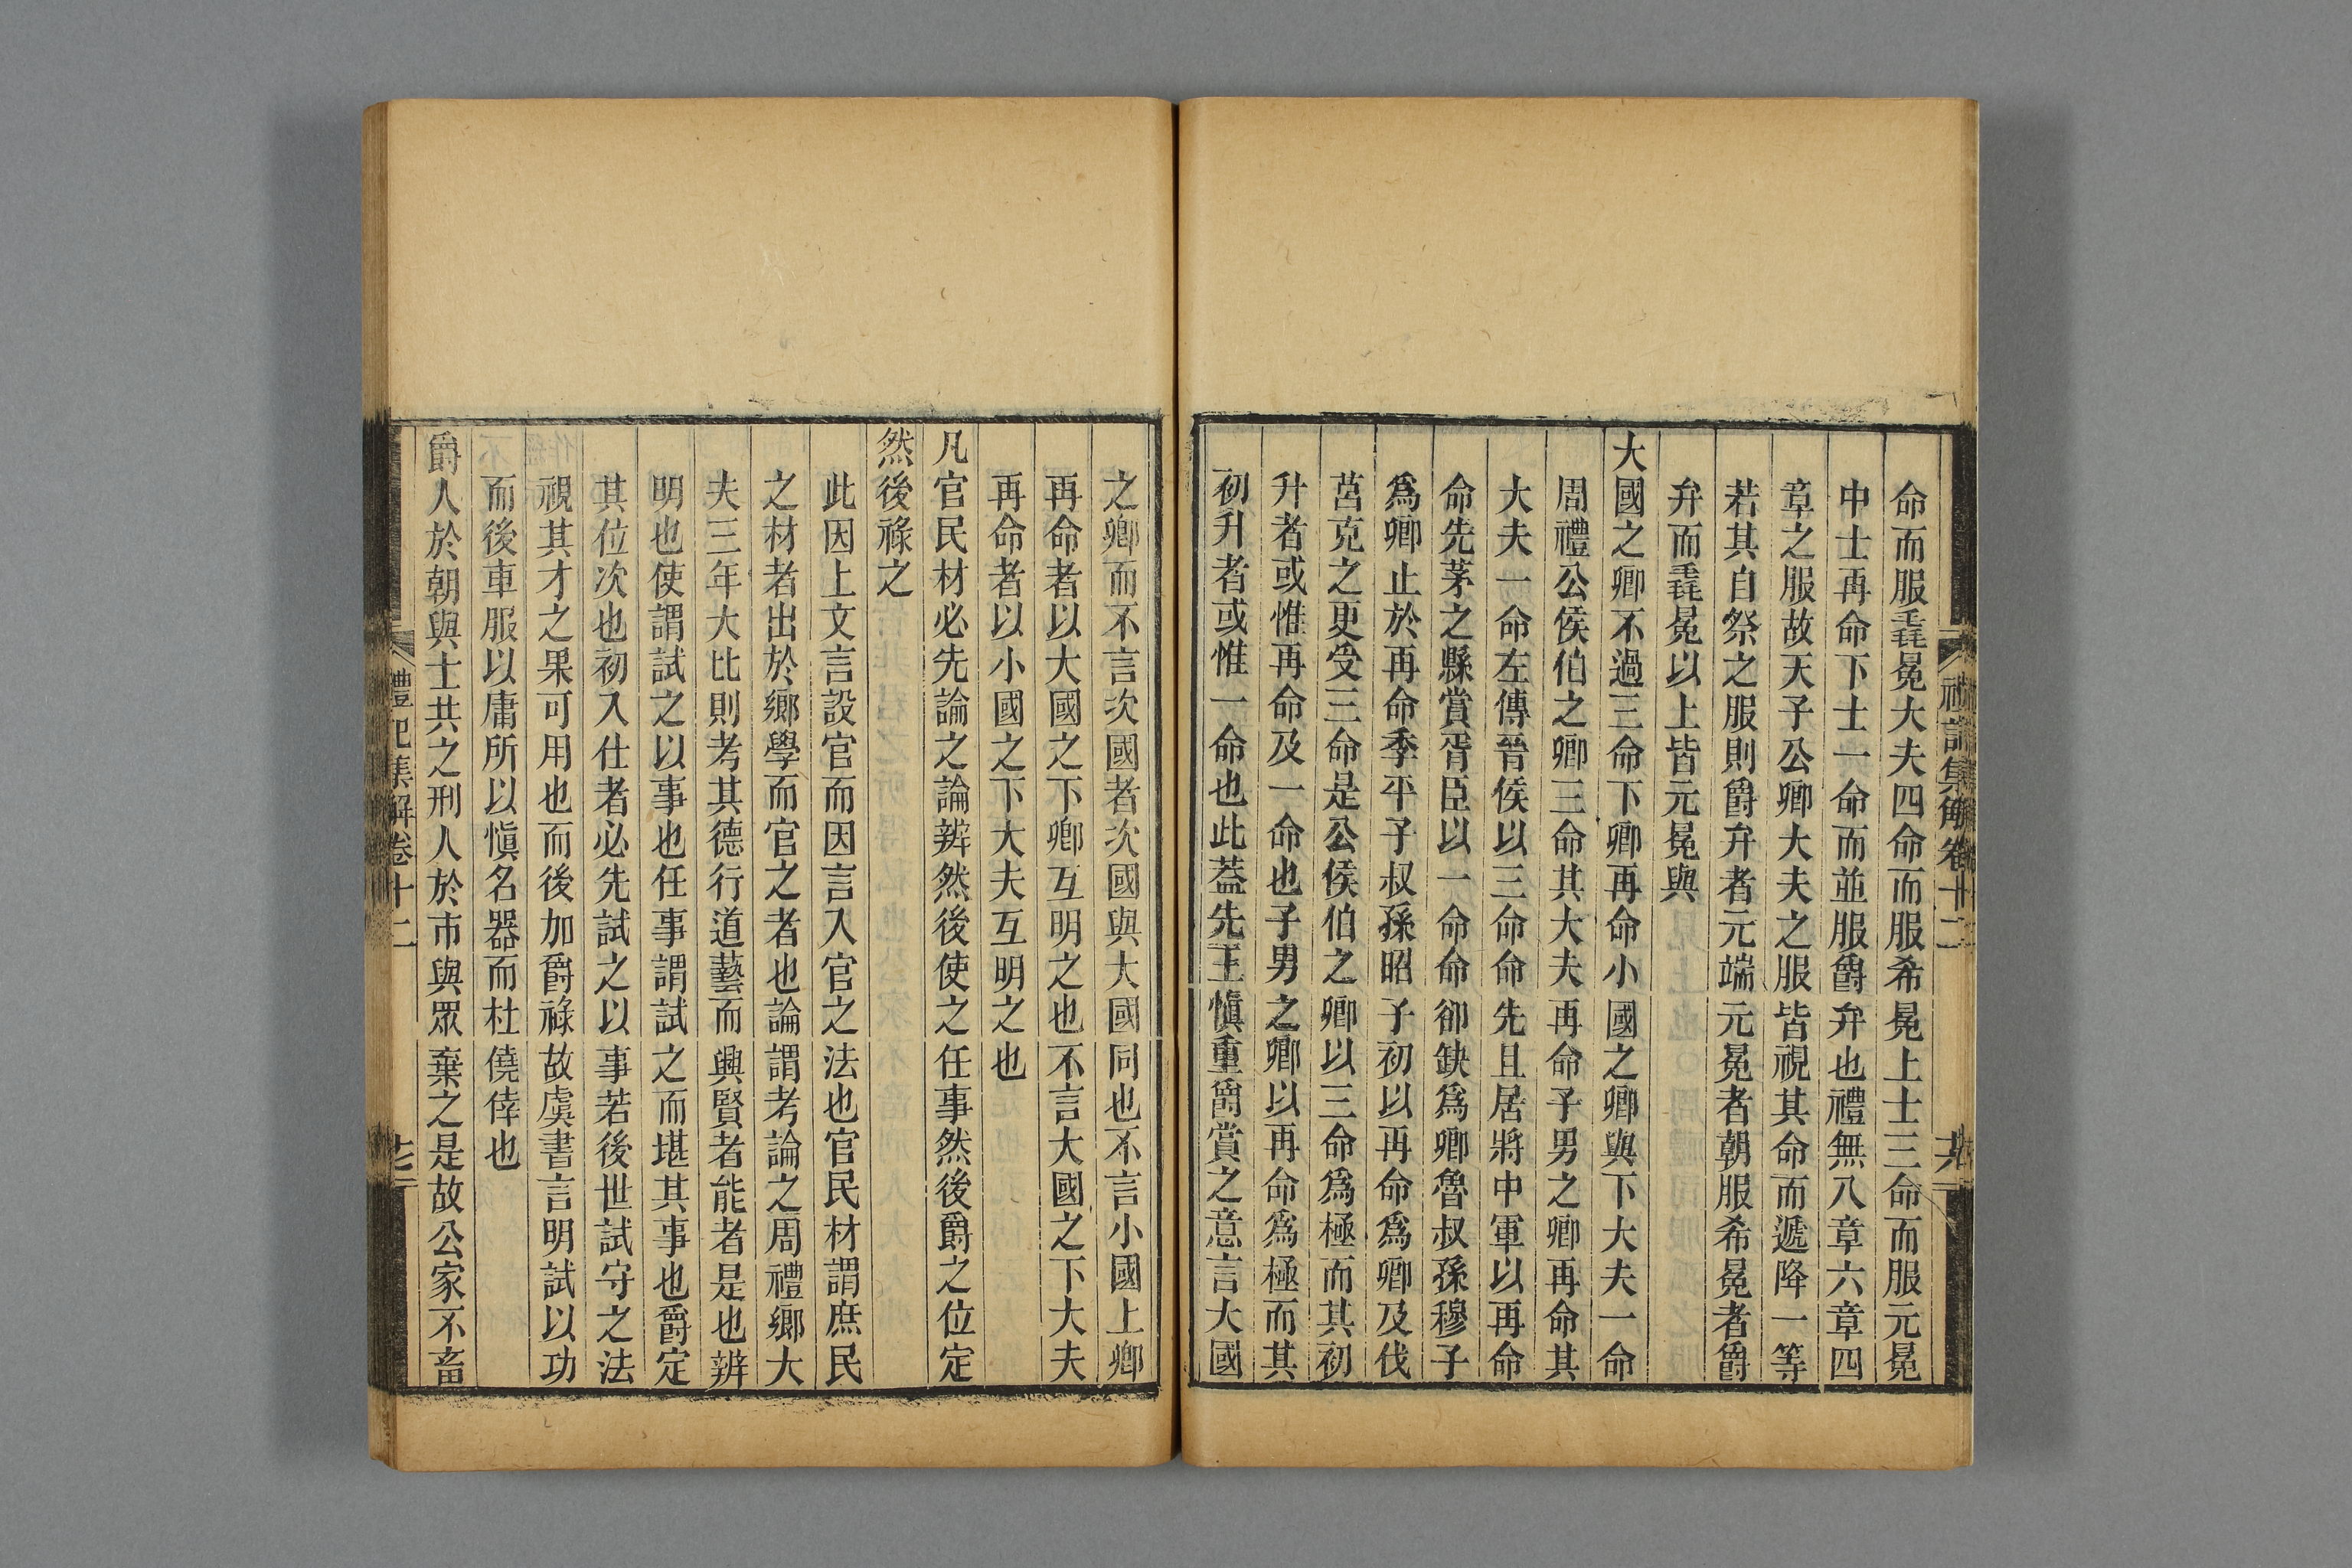 禮記集解卷十二
命而服毳冕大夫四命而服希冕上士三命而服元冕
中士再命下士一命而並服爵弁也禮無八章六章四
章之服故天子公卿大夫之服皆視其命而遞降一等
若其自祭之服則爵弁者元端元冕者朝服希冕者爵
弁而毳冕以上皆元冕與
大國之卿不過三命下卿再命小國之卿與下大夫一命
周禮公侯伯之卿三命其大夫再命子男之卿再命其
大夫一命左傳晉侯以三命命先且居將中軍以再命
命先茅之縣賞胥臣以一命命郤缺爲卿魯叔孫穆子
爲卿止於再命季平子叔孫昭子初以再命爲卿及伐
莒克之更受三命是公侯伯之卿以三命爲極而其初
升者或惟再命及一命也子男之卿以再命爲極而其
初升者或惟一命也此葢先王愼重爵賞之意言大國
之卿而不言次國者次國與大國同也不言小國上卿
再命者以大國之下卿互明之也不言大國之下大夫
再命者以小國之下大夫互明之也
凡官民材必先論之論辨然後使之任事然後爵之位定
然後祿之
此因上文言設官而因言入官之法也官民材謂庶民
之材者出於鄉學而官之者也論謂考論之周禮鄉大
夫三年大比則考其德行道藝而興賢者能者是也辨
明也使謂試之以事也任事謂試之而堪其事也爵定
其位次也初入仕者必先試之以事若後世試守之法
視其才之果可用也而後加爵祿故虞書言明試以功
而後車服以庸所以愼名器而杜僥倖也
爵人於朝與士共之刑人於市與眾棄之是故公家不畜
禮記集解卷十二